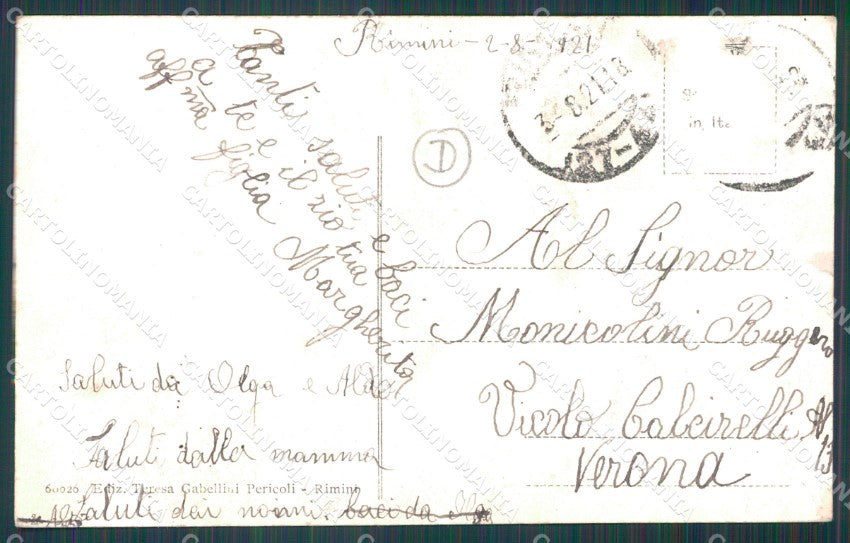 Rimini - 2-8-921
Tanti saluti e baci
a te e il zio tua
aff ma figlia Margherita
Saluti da Olga e Aldo
Saluti dalla mamma
60026 Ediz. Teresa Gabellini Pericoli - Rimini
Saluti dai nonni. baci da
D
3-8.21.18
in Ita
Al Signor
Monicolini Ruggero
Vicolo Calcirelli N
13
Verona
CARTOLINOMANIA